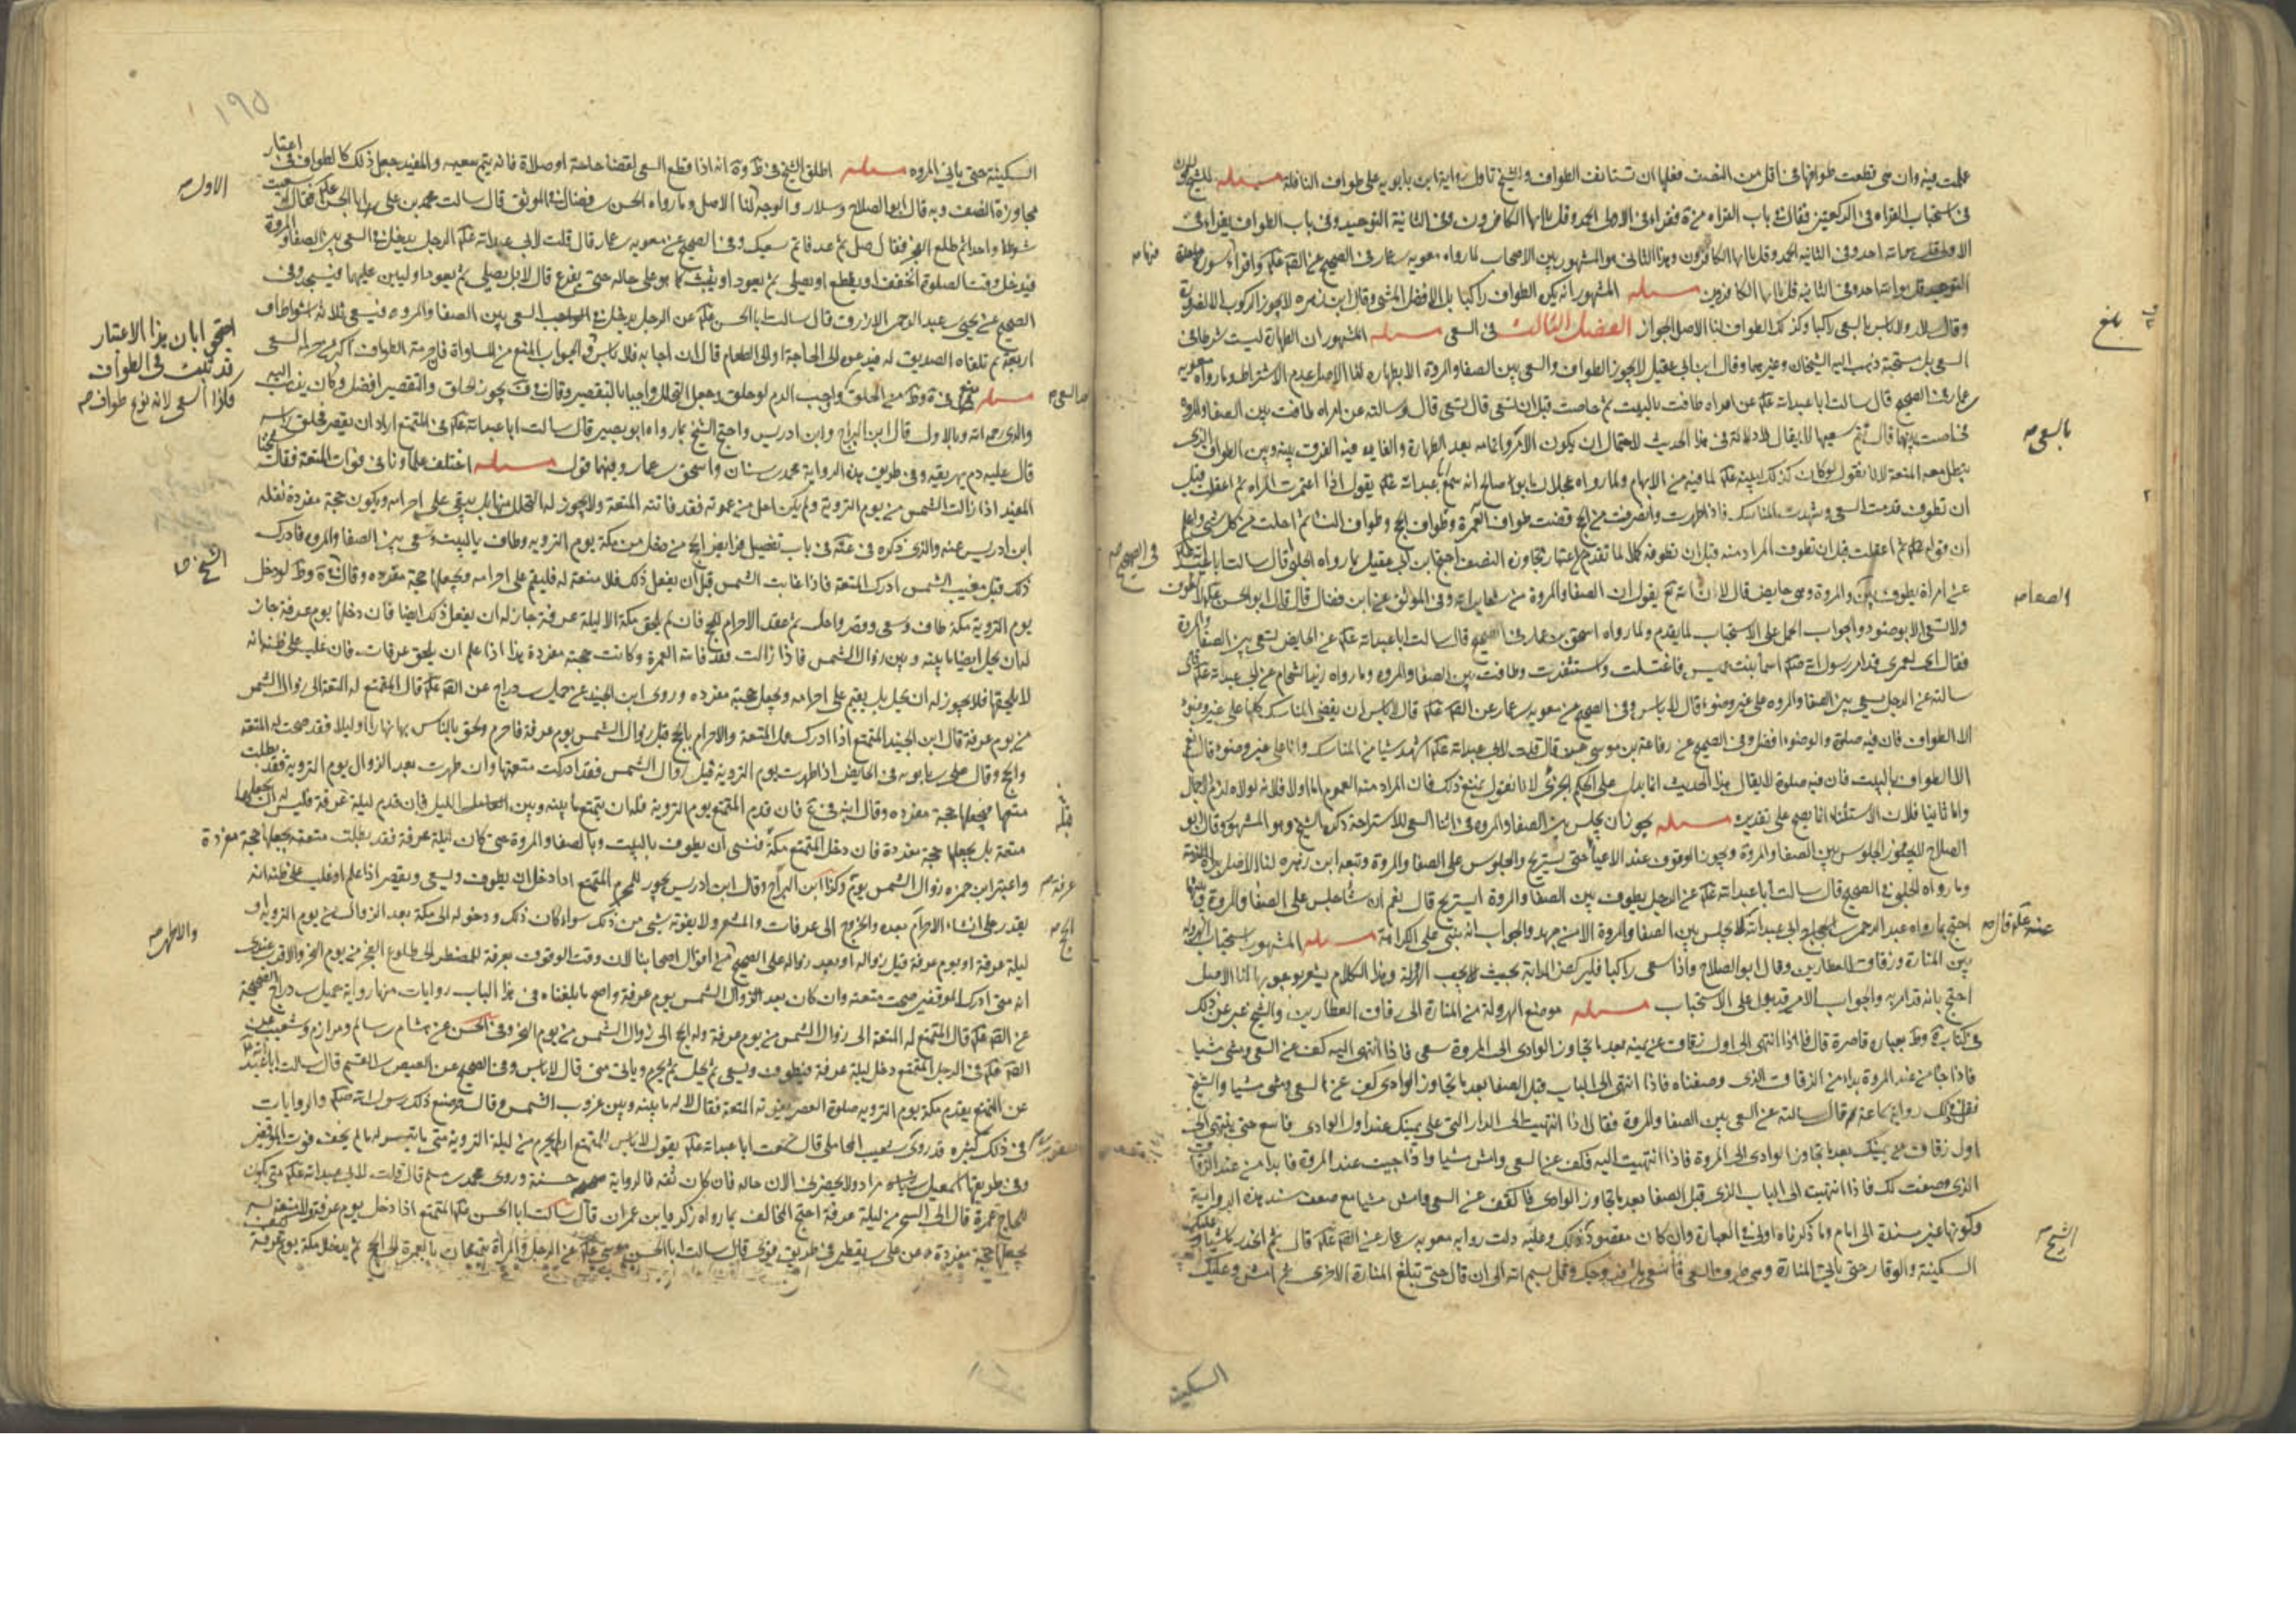 علمت فيه وان هي قطعت طوافها في اقل من النصف فعليها ان تستانف الطواف والشيخ تاول رواية ابن بابويه على طواف النافلة مسئله للشيخ قولان
في استحباب القراءه في الركعتين فقال في باب القراءه من ة فقراء في الاولى الحمد وقل يا ايها الكافرون وفي الثانية التوحيد وفي باب الطواف يقراء في
الاولى قل هو الله احد وفي الثانيه الحمد وقل يا ايها الكافرون وهذا الثاني هو المشهور بين الاصحاب لما رواه معويه بن عمار في الصحيح عن الصه عليكم واقراء سورة
التوحيد قل هو الله احد وفي الثانيه قل يا ايها الكافرون مسئله المشهور انه يكره الطواف راكبا بل الافضل المشي وقال ابن زهره لا يجوز الركوب الا لضرورة
وقال سلار ولا باس بالسعي راكبا وكذلك الطواف لنا الاصل الجواز الفصل الثالث في السعي مسئله المشهور ان الطهارة ليست شرطا في
السعي بل مستحبة ذهب اليه الشيخان وغيرهما وقال ابن ابي عقيل لا يجوز الطواف والسعي بين الصفا والمروة الا بطهاره لنا الاصل عدم الاشتراط وما رواه معويه
بن عمار في الصحيح قال سالت ابا عبدالله عليه عن امراه طافت بالبيت ثم حاضت قبل ان تسعى قال تسعى قال وسالته عن امراه طافت بين الصفا والمروه
فحاضت بينهما قال تتم سعيها لا يقال لا دلالة في هذا الحديث لاحتمال ان يكون الامر باتمامه بعد الطهارة والفايده فيه الفرق بينه وبين الطواف الذي
يبطل معه المتعة لانا نقول لو كان كذلك لبينه عليه لما فيه من الابهام ولما رواه عجلان ابو صالح انه سمع ابا عبدالله عليه يقول اذا اعتمرت المراه ثم اعتلت قبل
ان تطوف قدمت السعي وشهدت المناسك فاذا طهرت وانصرفت من الحج قضت طواف العمرة وطواف الحج وطواف النسا ثم احلت من كل شي
عن امراة تطوف بين والمروة وهي حايض قال لا ان الله تعالى يقول ان الصفا والمروة من شعاير الله وفي الموثق عن ابن فضال قال قال ابو الحسن عليه لا تطوف
ولا تسعى الا بوضوء والجواب الحمل على الاستحباب لما تقدم ولما رواه اسحق بن عمار في الصحيح قال سالت ابا عبدالله عليه عن الحايض تسعى بين الصفا والمروة
فقال اي لعمري قد امر رسول الله اسما بنت عميس فاغتسلت واستثفرت وطافت بين الصفا والمروه وما رواه زيد الشحام عن ابي عبدالله عليه قال
سالته عن الرجل يسعى بين الصفا والمروه على غير وضوء قال لا باس وفي الصحيح عن معويه بن عمار عن الصه عليه قال لا باس ان يقضي المناسك كلها على غير وضوء
الا الطواف فان فيه صلوة والوضوء افضل وفي الصحيح عن رفاعة بن موسى قال قلت لابي عبدالله عليه اشهد شيا من المناسك وانا على غير وضوء قال نعم
الا الطواف بالبيت فان فيه صلوة لا يقال هذا الحديث انما يدل على الحكم الجزئي لانا نقول نمنع ذلك فان المراد منه العموم اما اولا فلانه لولاه لزم الاجمال
واما ثانيا فلان الاستثناء انما يصح على تقديره مسئله يجوز ان يجلس بين الصفا والمروه في اثنا السعي للاستراحة ذكره الشيخ وهو المشهور وقال ابو
الصلاح لا يجوز الجلوس بين الصفا والمروة ويجوز الوقوف عند الاعياء حتى يستريح والجلوس على الصفا والمروة وتبعه ابن زهره لنا الاصل براة الذمة
وما رواه الحلبي في الصحيح قال سالت ابا عبدالله عليه عن الرجل يطوف بين الصفا والمروة ايستريح قال نعم ان شا جلس على الصفا والمروة وبينهما
احتج بما رواه عبد الرحمن بن الحجاج ابي عبدالله لا يجلس بين الصفا والمروة الا من جهد والجواب انه ينبي على الكراهة مسئله المشهور استحباب الهرولة
بين المنارة وزقاق العطارين وقال ابو الصلاح واذا سعى راكبا فليركض الدابة بحيث تجب الهرولة وهذا الكلام يشعر بوجوبها لنا الاصل
احتج بانه قد امر به والجواب الامر قد يدل على الاستحباب مسئله موضع الهرولة من المنارة الى زقاق العطارين والشيخ عبر عن ذلك
في كتابه ة وط بعباره قاصرة قال فاذا انتهى الى اول زقاق عن يمينه بعد ما تجاوز الوادي الى المروة سعى فاذا انتهى اليه كف عن السعي ومشى مشيا
فاذا جا من عند المروة بدا من الزقاق الذي وصفناه فاذا انتهى الى الباب قبل الصفا بعد ما تجاوز الوادي كف عن السعي ومشى مشيا والشيخ
نقل في ذلك رواية سماعة قال سالته عن السعي بين الصفا والمروة فقال اذا انتهيت الى الدار التي على يمينك عند اول الوادي فاسع حتى تنتهي الى
اول زقاق عن يمينك بعد ما تجاوز الوادي الى المروة فاذا انتهيت اليه فكف عن السعي وامش مشيا واذا جيت عند المروة فابدا من عند الزقاق
الذي وصفت لك فاذا انتهيت الى الباب الذي قبل الصفا بعد ما تجاوز الوادي فاكفف عن السعي وامش مشيا مع ضعف سند هذه الرواية
وكونها غير مسندة الى امام وما ذكرناه اولى في العبارة وان كان مقصوده ذلك وعليه دلت روايه معويه بن عمار عن الصه عليه قال ثم انحدر ماشيا وعليك
السكينة والوقار حتى تاتي المنارة وهي طرف السعي فاسع ملأ فروجك وقل بسم الله الى ان قال حتى تبلغ المنارة الاخرى ثم امش وعليك
السكينة
بلغ
بالسعي صح
الصفا صح
في الصحيح صح
عنه عليه قال صح
الشيخ صح
١٩٥
السكينة حتى ياتي المروه مسئله اطلق الشيخ في ط وة انه اذا قطع السعي لقضا حاجة او صلاة فانه يتم سعيه والمفيد جعل ذلك كالطواف في اعتبار
مجاوزة النصف وبه قال ابو الصلاح وسلار والوجه لنا الاصل وما رواه الحسن بن فضال في الموثق قال سالت محمد بن علي ابا الحسن عليه فقال سعيت
شوطا واحدا ثم طلع الفجر فقال صل ثم عد فاتم سعيك وفي الصحيح عن معويه بن عمار قال قلت لابي عبدالله عليه الرجل يدخل في السعي بين الصفا والمروة
فيدخل وقت الصلوة ايخفف او يقطع او يصلي ثم يعود او يثبت كما هو على حاله حتى يفرغ قال لا بل يصلي ثم يعود اوليس عليهما مسجد وفي
الصحيح عن يحيى بن عبد الرحمن الازرق قال سالت ابا الحسن عليه عن الرجل يدخل في السعي بين الصفا والمروه فيسعى ثلاثة اشواط او
اربعة ثم تلقاه الصديق له فيدعوه الى الحاجة او الى الطعام قال ان اجابه فلا باس والجواب المنع من المساواة فان حرمة الطواف اكثر من حرمة السعي
مسئله منع في ة وط من الحلق واوجب الدم لو حلق وجعل التحلل واجبا بالتقصير وقال في ف يجوز الحلق والتقصير افضل وكان يذهب اليه
والدي رحمه الله وبالاول قال ابن البراج وابن ادريس واحتج الشيخ بما رواه ابو بصير قال سالت ابا عبدالله عليه عن المتمتع اراد ان يقصر فحلق راسه
قال عليه دم يهريقه وفي طريق هذه الرواية محمد بن سنان واسحق بن عمار وفيهما قول مسئله اختلف علماؤنا في فوات المتعة فقال شيخنا
المفيد اذا زالت الشمس من يوم التروية ولم يكن احل من عمرته فقد فاتته المتعة ولا يجوز له التحلل منها بل يبقى على احرامه ويكون حجة مفردة نقله
ابن ادريس عنه والذي ذكره في باب تفصيل فرايض الحج من دخل من مكة يوم التروية وطاف بالبيت وسعى بين الصفا والمروه فادرك
ذلك قبل مغيب الشمس ادرك المتعة فاذا غابت الشمس قبل ان يفعل ذلك فلا متعة له فليقم على احرامه ويجعلها حجة مفرده وقال في ة وط لو دخل
يوم التروية مكة طاف وسعى وقصر واحل ثم عقد الاحرام للحج فان لم يلحق مكة الا ليلة عرفة جاز له ان يفعل ذلك ايضا فان دخلها يوم عرفة جاز
له ان يحل ايضا ما بينه وبين زوال الشمس فاذا زالت فقد فاتته العمرة وكانت حجته مفردة هذا اذا علم ان يلحق عرفات فان غلب على ظنه انه
لا يلحقها فلا يجوز له ان يحل بل يقيم على احرامه ويجعل حجته مفرده وروى ابن الجنيد عن جميل بن دراج عن الصه عليه قال المتمتع له المتعة الى زوال الشمس
من يوم عرفة قال ابن الجنيد المتمتع اذا ادرك عمل المتعة والاحرام بالحج قبل زوال الشمس يوم عرفة فاحرم ولحق بالناس بها نهارا او ليلا فقد صحت له المتعة
والحج وقال علي بن بابويه في الحايض اذا طهرت يوم التروية قبل زوال الشمس فقد ادركت متعتها وان طهرت بعد الزوال يوم التروية فقد بطلت
متعتها فتجعلها حجة مفرده وقال ابنه فان قدم المتمتع يوم التروية فله ان يتمتع ما بينه وبين الليل فان قدم ليلة عرفة فليس له ان يجعلها
متعة بل يجعلها حجة مفردة فان دخل المتمتع مكة فنسي ان يطوف بالبيت وبالصفا والمروة حتى كان ليلة عرفة فقد بطلت متعته يجعلها حجة مفردة
واعتبر ابن حمزه زوال الشمس يوم وكذا ابن البراج وقال ابن ادريس يجوز للمحرم المتمتع اذا دخل ان يطوف ويسعى ويقصر اذا علم او غلب على ظنه انه
يقدر على انشاء الاحرام بعده والخروج الى عرفات والمشعر ولا يفوته شي من ذلك سواء كان ذلك ودخوله الى مكة بعد الزوال من يوم التروية او
ليلة عرفة او يوم عرفة قبل زواله او بعد زواله على الصحيح من اقوال اصحابنا لان وقت الوقوف بعرفة للمضطر الى طلوع الفجر من يوم النحر والاقرب عندي
انه متى ادرك الموقفين صحت متعته وان كان بعد زوال الشمس يوم عرفة واصح ما بلغناه في هذا الباب روايات منها رواية جميل بن دراج الصحيحة
عن الصه عليه قال المتمتع له المتعة الى زوال الشمس من يوم عرفة وله الحج الى زوال الشمس من يوم النحر وفي الحسن عن هشام بن سالم ومرازم وشعيب عن
الصه عليه في الرجل المتمتع دخل ليلة عرفة فيطوف ويسعى ثم يحل ثم يحرم وياتي منى قال لا باس وفي الصحيح عن العيص بن القسم قال سالت ابا عبدالله
عن المتمتع يقدم مكة يوم التروية صلوة العصر تفوته المتعة فقال لا له ما بينه وبين غروب الشمس وقال قد صنع ذلك رسول الله والروايات
في ذلك كثيره قد روى يعقوب بن شعيب المحاملي قال سمعت ابا عبدالله عليه يقول لا باس للمتمتع ان يحرم من ليلة التروية متى ما تيسر له ما لم يخف فوت الموقفين
وفي طريقها اسمعيل بن مراد ولا يحضرني الان حاله فان كان ثقه فالرواية حسنة وروى محمد بن مسلم قال قلت لابي عبدالله عليه متى يكون
للحاج عمرة قال الى السحر من ليلة عرفة احتج المخالف بما رواه زكريا بن عمران قال سالت ابا الحسن عليه المتمتع اذا دخل يوم عرفة قال لا متعة له
يجعلها حجة مفردة وعن علي بن يقطين في طريق قوي قال سالت ابا الحسن موسى عليه عن الرجل والمراة يتمتعان بالعمرة الى الحج ثم يدخل مكة يوم عرفة
الاول صح
احتج ابان هذا الاعتبار
قد ثبت في الطواف
فكذا السعي لانه نوع طواف صح
الشيخ
والاظهر صح
عرفة صح
الحج صح